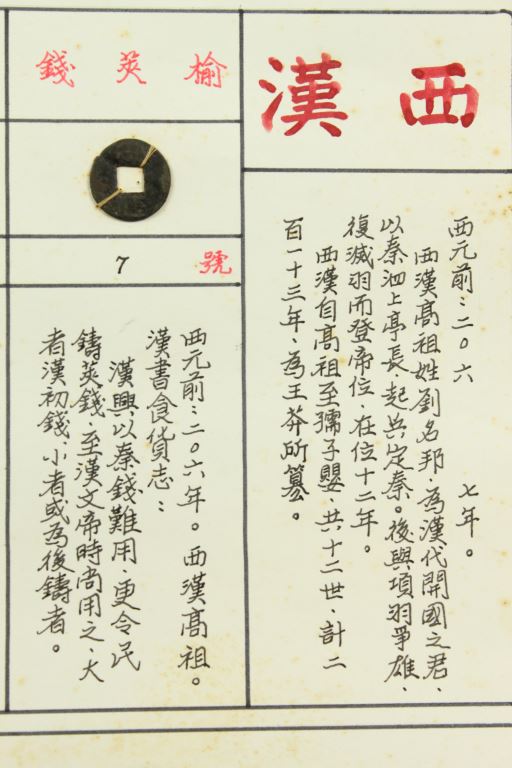 西漢
西元前：二〇六　七年。
西漢高祖姓劉名邦、為漢代開國之君、
以秦泗上亭長起兵定秦。後與項羽爭雄、
復滅羽而登帝位、在位十二年。
西漢自高祖至孺子嬰、共十二世、計二
百一十三年、為王莽所篡。
榆莢錢
號
7
西元前：二〇六年。西漢高祖。
漢書食貨志：
漢興以秦錢難用、更令民
鑄莢錢、至漢文帝時尚用之、大
者漢初錢、小者或為後鑄者。